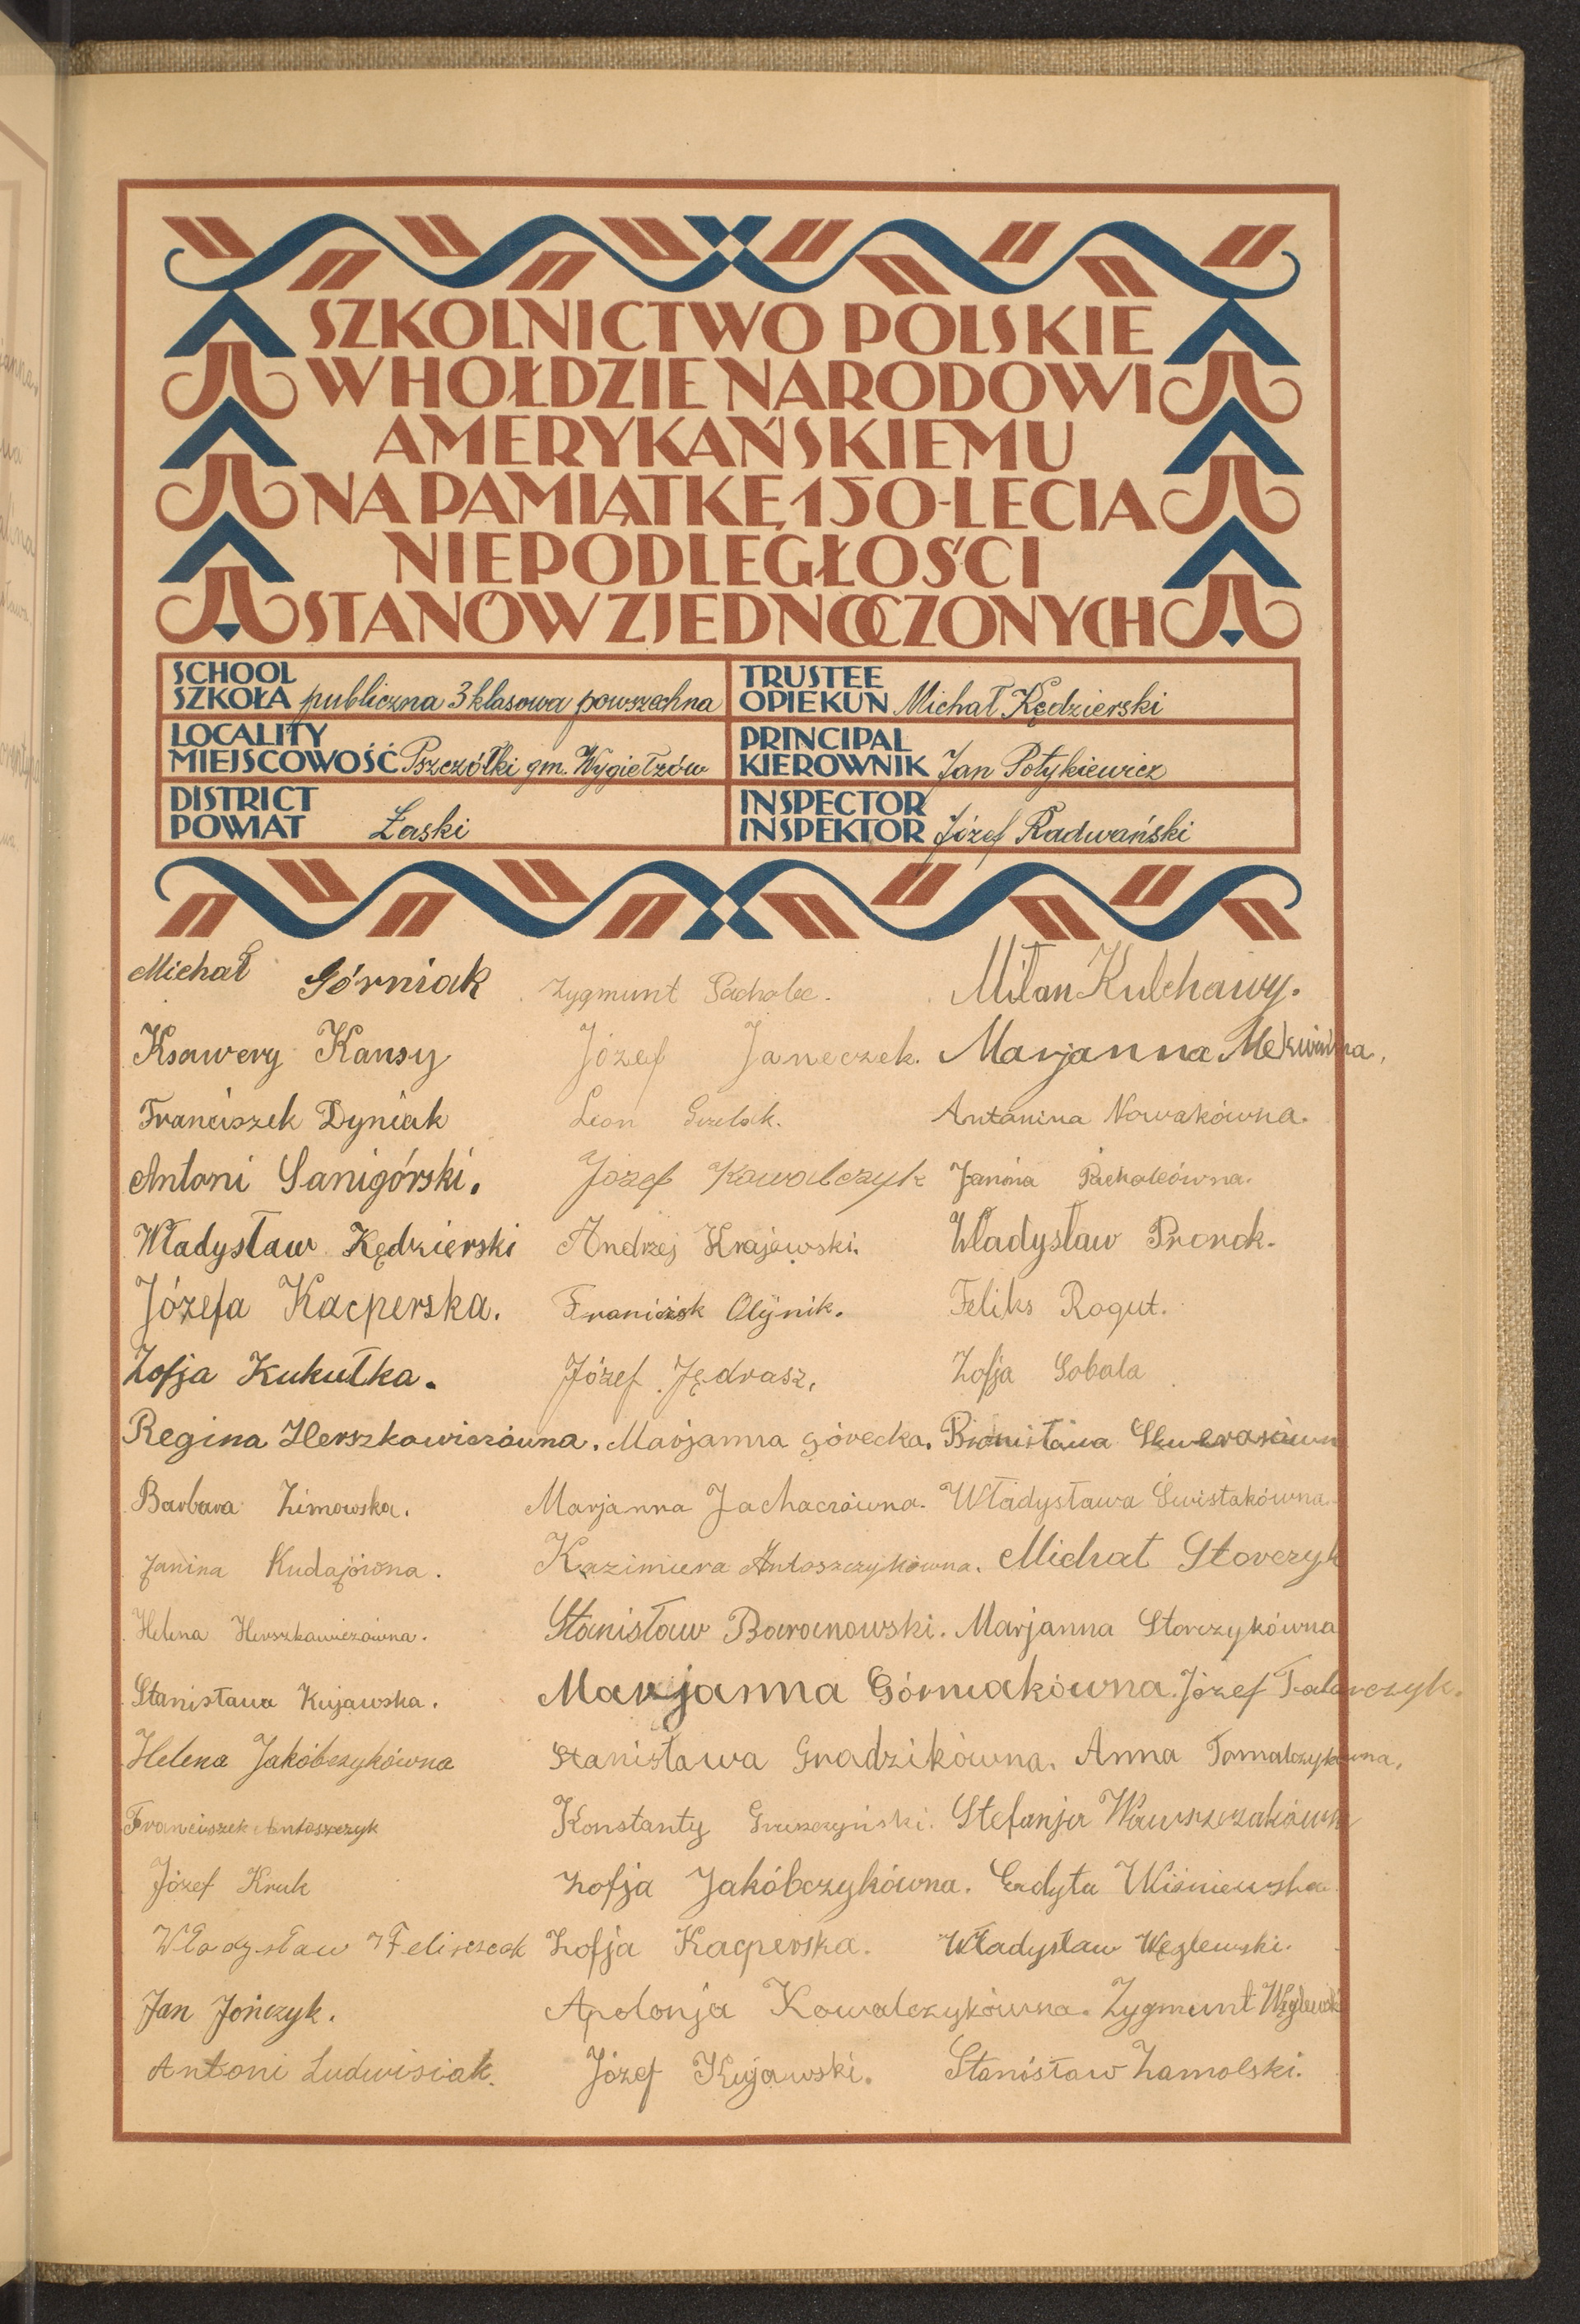 SZKOLNICTWO POLSKIE
W HOŁDZIE NARODOWI
AMERYKAŃSKIEMU
NA PAMIĄTKĘ 150-LECIA
NIEPODLEGŁOŚCI
STANÓW ZJEDNOCZONYCH
SCHOOL
SZKOŁA publiczna 3 klasowa powszechna
TRUSTEE
OPIEKUN Michał Kędzierski
LOCALITY
MIEJSCOWOŚĆ Pszczółki gm. Wygiełzów
PRINCIPAL
KIEROWNIK Jan Potykiewicz
DISTRICT
POWIAT Łaski
INSPECTOR
INSPEKTOR Józef Radwański
Michał Górniak
Ksawery Kansy
Franciszek Dyniak
Antoni Sanigórski.
Władysław Kędzierski
Józefa Kacperska.
Zofja Kukułka.
Regina Herszkowiczówna.
Barbara Zimowska.
Janina Kudajówna.
Helena Herszkowiczówna.
Stanisława Kujawska.
Helena Jakóbczykówna
Franciszek Antoszczyk
Józef Kruk
Władysław Feliszczak
Jan Jończyk.
Antoni Ludwisiak.
Zygmunt Pacholec.
Józef Janeczek.
Leon
Józef Kowalczyk
Andrzej Krajewski.
Olijnik.
Józef Jędrasz.
Marjanna Górecka.
Marjanna Jachaczówna.
Kazimiera Antoszczykówna.
Stanisław Baranowski.
Marjanna Górniakówna.
Stanisława Gradzikówna.
Konstanty Gruszczyński.
Zofja Jakóbczykówna.
Zofja Kacperska.
Apolonja Kowalczykówna.
Józef Kujawski.
Milan Kulchawy.
Marjanna
Antonina Nowakówna.
Janina Pacholcówna.
Władysław Pronok.
Feliks Rogut.
Zofja Sobala
Bronisława
Władysława Świstakówna.
Michał Storczyk
Marjanna Storczykówna
Józef Talarczyk.
Anna Tomalczykówna.
Stefanja Wawrszczakówna
Edyta Wiśniewska
Władysław Węglewski.
Zygmunt Węglewski
Stanisław Zamolski.